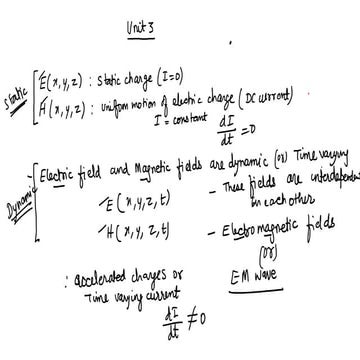 Unit 3
Static
E(x,y,z) : static charge (I=0)
H(x,y,z) : uniform motion of electric charge (DC current)
I = constant dI/dt = 0
Dynamic
Electric field and Magnetic fields are dynamic (or) Time varying
E(x,y,z,t) - These fields are interdependent
on each other
H(x,y,z,t) - Electromagnetic fields
(or)
EM wave
∴ accelerated charges or
Time varying current
dI/dt ≠ 0